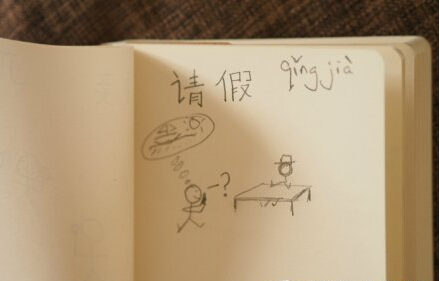 请假 qǐng jià
?